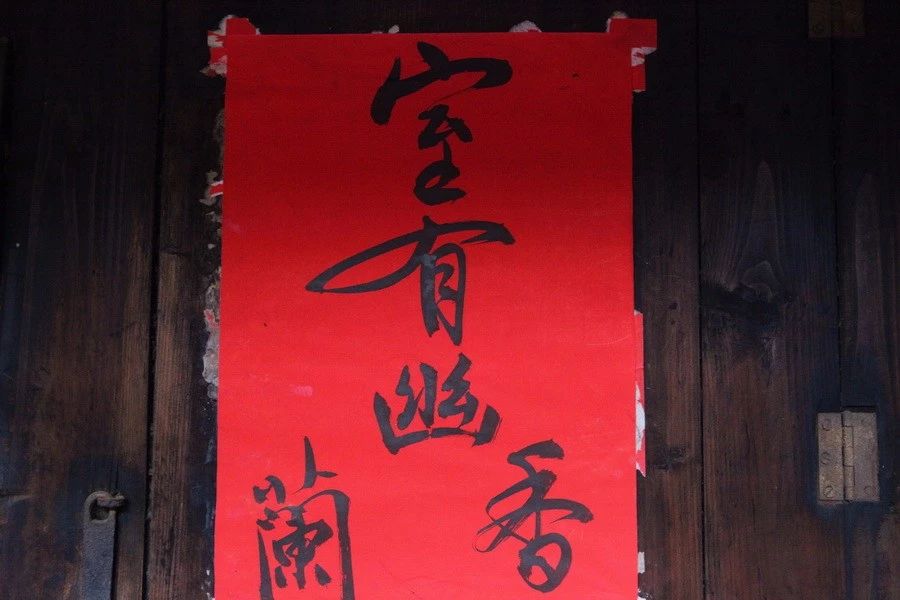 室有幽
蘭香